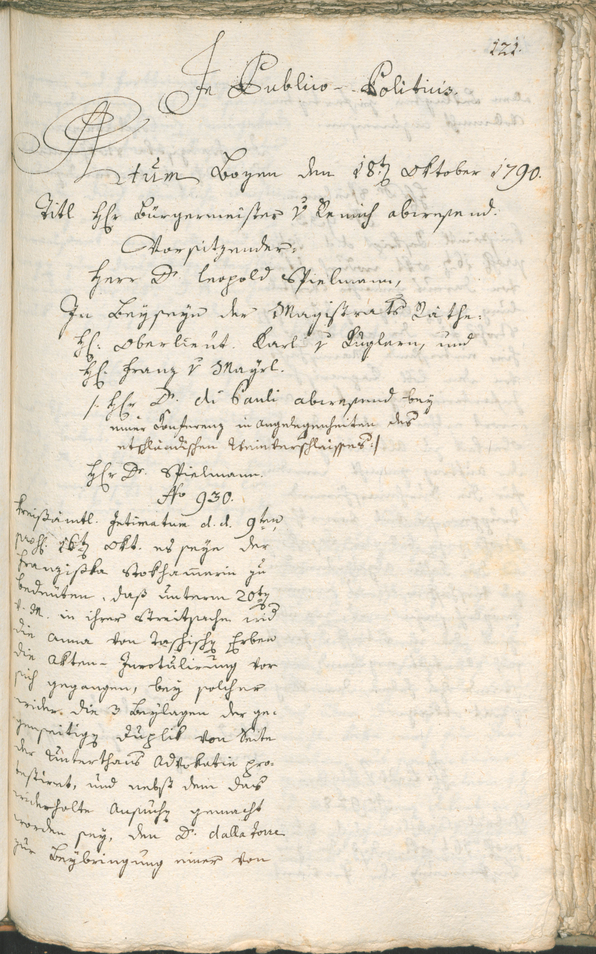 121.
In Publico-Politicis.
Actum Bozen den 18t Oktober 1790.
Titl Hr Bürgermeister v Remich abwesend.
Vorsitzender:
Herr Dr. Leopold Spielmann,
In Beyseyn der Magistrats Räthe:
H: Oberlieut. Karl v Kuglern, und
H: Franz v Mayrl.
/: Hr Dr. di Pauli abwesend bey
einer Conferenz in Angelegenheiten des
etschländischen Weinverschleisses :/
Hr Dr. Spielmann.
No 930.
Kreisämtl. Intimatum d. d. 9ten
pres 16t Okt. es seye der
Franziska Stokhamerin zu
bedeuten, daß unterm 20t
v. M. in ihrer Streitsache wid
die Anna von
Erben
die Akten-Inrotulirung vor
sich gegangen, bey solcher
wider die 3 Beylagen der ge-
genseitigen Duplik von Seite
des Unterthans Advokatie pro-
testirt, und nebst dem das
wiederholte Ansuchen gemacht
worden sey, den Dr. dalla Torre
zur Beybringung einer von